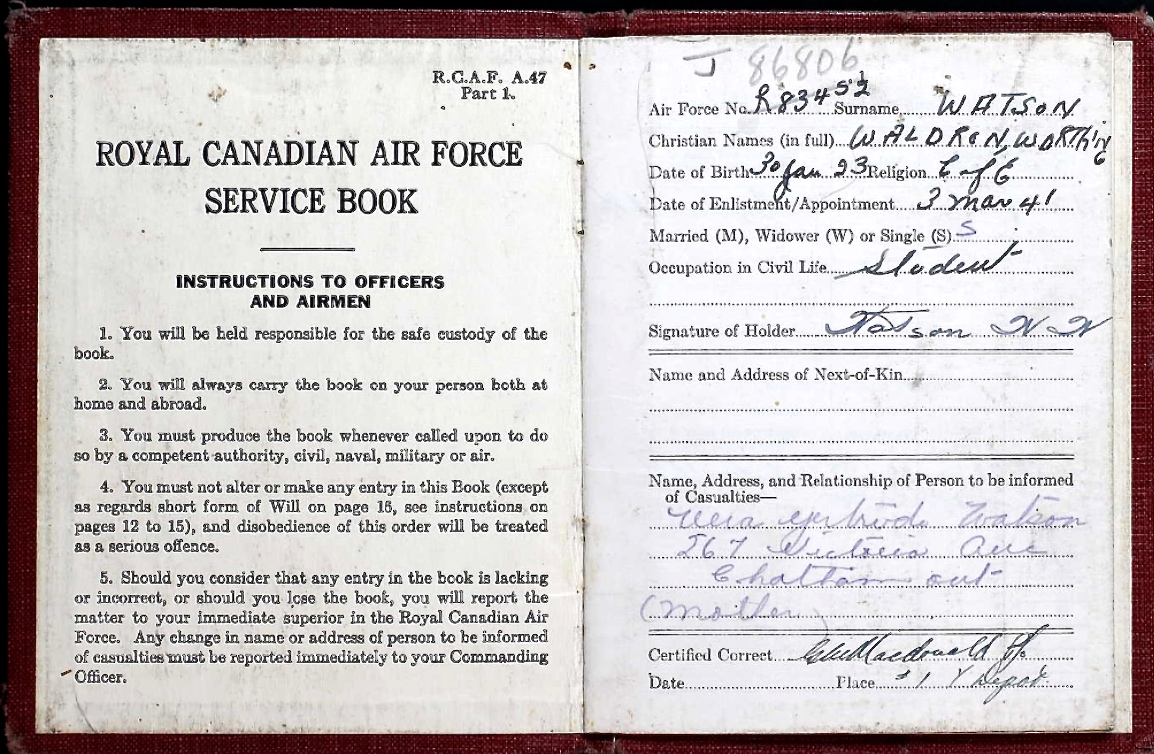 R.C.A.F. A.47
Part 1.
ROYAL CANADIAN AIR FORCE
SERVICE BOOK
INSTRUCTIONS TO OFFICERS
AND AIRMEN
1. You will be held responsible for the safe custody of the
book.
2. You will always carry the book on your person both at
home and abroad.
3. You must produce the book whenever called upon to do
so by a competent authority, civil, naval, military or air.
4. You must not alter or make any entry in this Book (except
as regards short form of Will on page 16, see instructions on
pages 12 to 15), and disobedience of this order will be treated
as a serious offence.
5. Should you consider that any entry in the book is lacking
or incorrect, or should you lose the book, you will report the
matter to your immediate superior in the Royal Canadian Air
Force. Any change in name or address of person to be informed
of casualties must be reported immediately to your Commanding
Officer.
J 86806
Air Force No. R83452 Surname WATSON
Christian Names (in full) WALDRON, WORTHING
Date of Birth 30 Jan 23 Religion C of E
Date of Enlistment/Appointment 3 Mar 41
Married (M), Widower (W) or Single (S) S
Occupation in Civil Life Student
Signature of Holder Watson W W
Name and Address of Next-of-Kin
Name, Address, and Relationship of Person to be informed
of Casualties—
Vera Gertrude Watson
267 Victoria Ave
Chatham Ont
(Mother)
Certified Correct Macdonald
Date Place #1 Y Depot